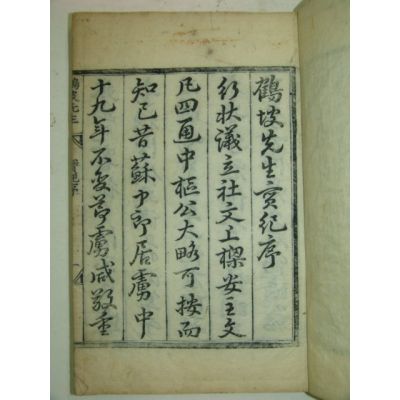 鶴坡先生實紀序
行狀議立社文上樑安主文
凡四通中樞公大略可按而
知已昔蘇中郎居虜中
十九年不變節虜咸敬重